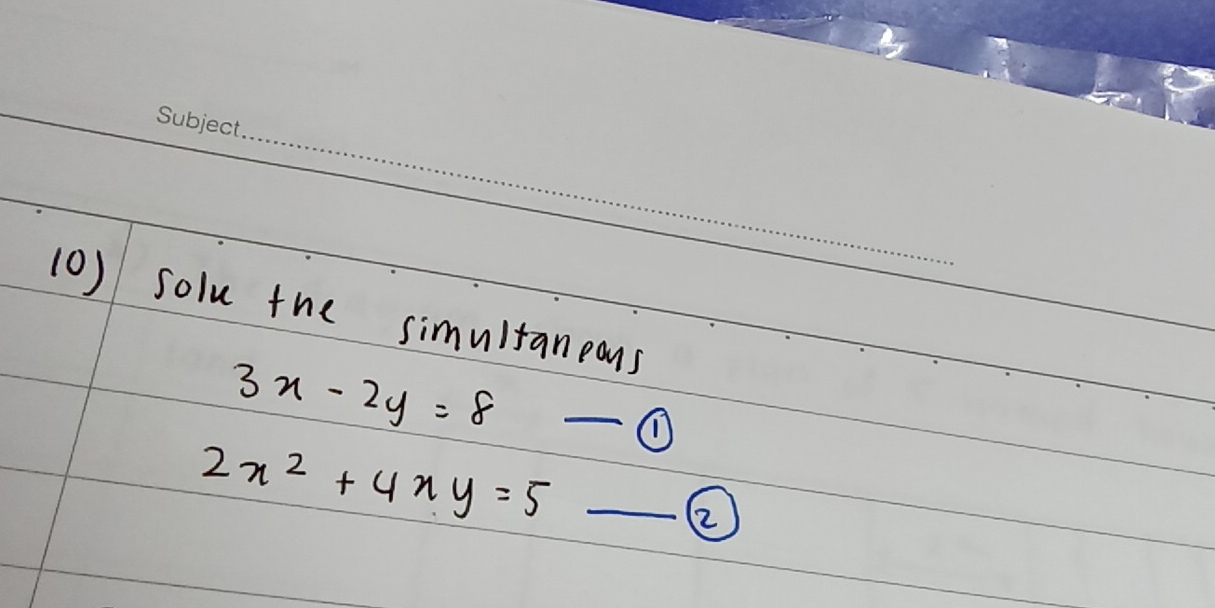 Subject
10) Solve the simultaneous
3x - 2y = 8 — ①
2x² + 4xy = 5 — ②